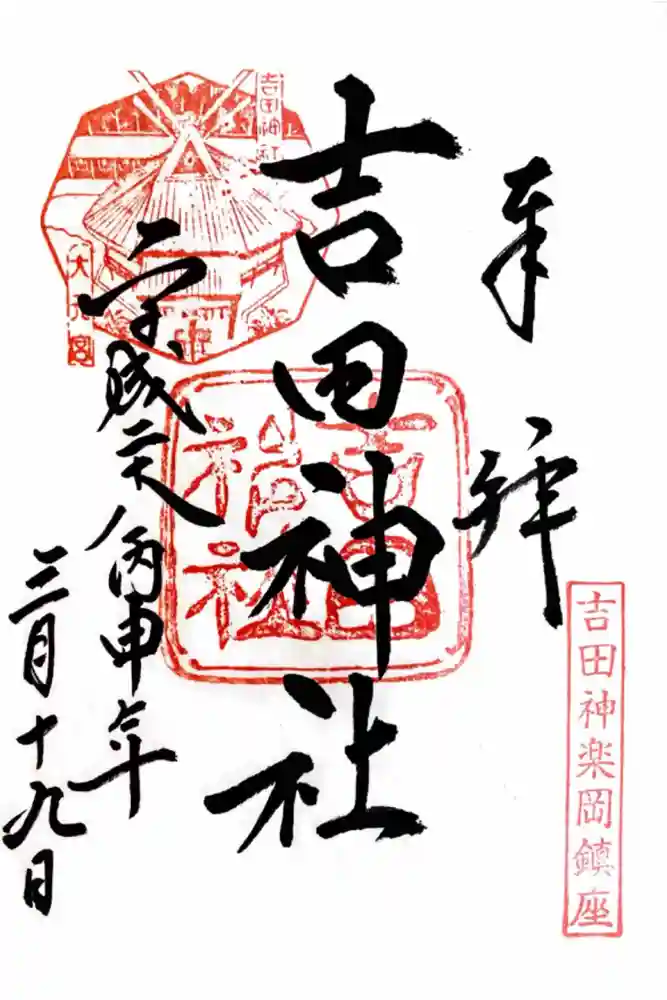 奉拝
吉田神楽岡鎮座
吉田神社
吉田
神社
吉田神社
大元宮
平成二十八丙申年
三月十九日